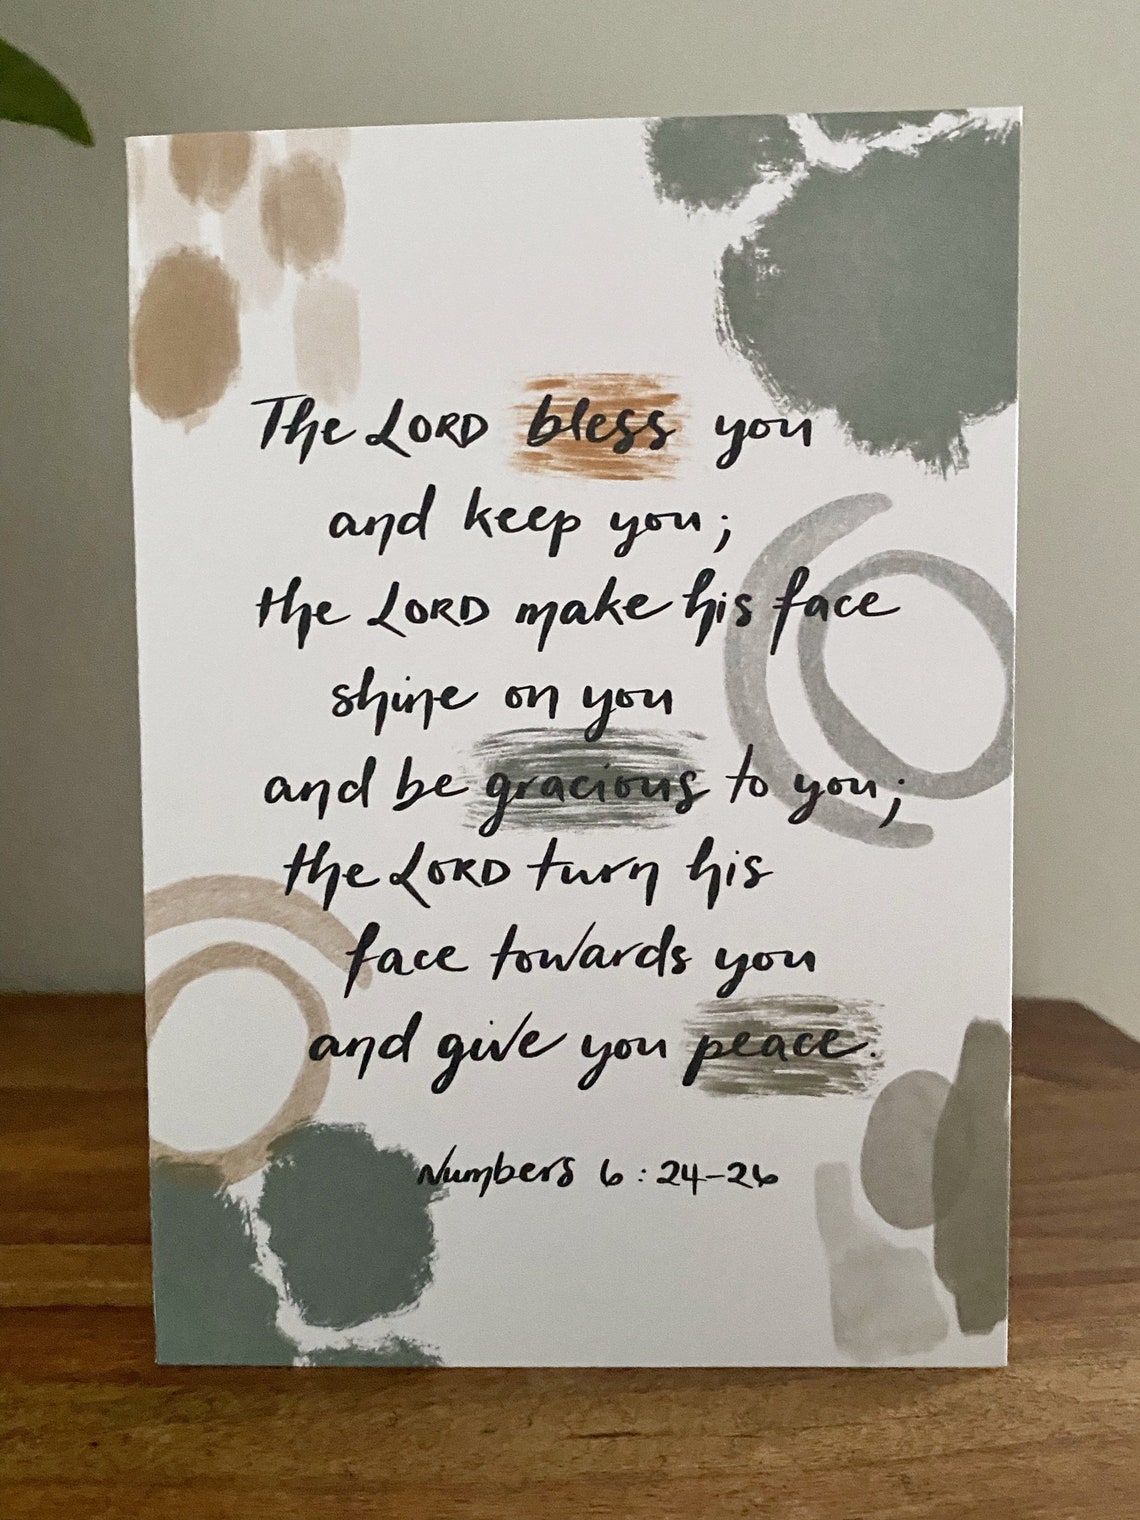 The LORD bless you
and keep you;
the LORD make his face
shine on you
and be gracious to you;
the LORD turn his
face towards you
and give you peace.
Numbers 6:24-26